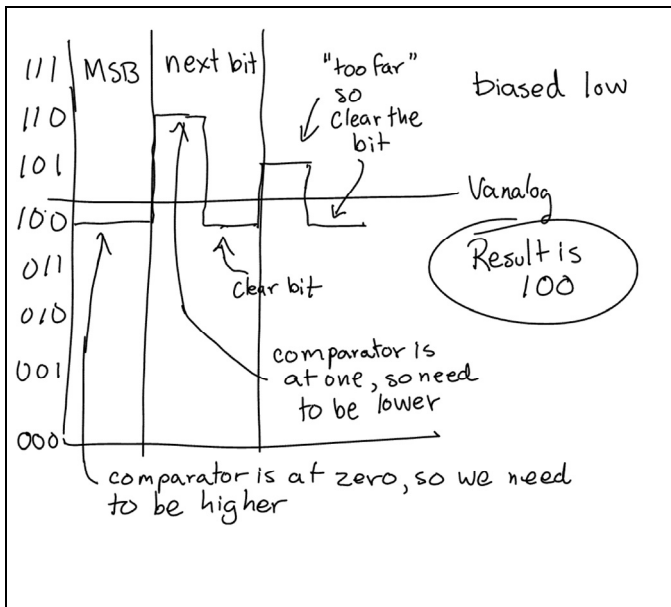 111
110
101
100
011
010
001
000
MSB
next bit
"too far"
so
clear the
bit
biased low
Vanalog
Result is
100
clear bit
comparator is
at one, so need
to be lower
comparator is at zero, so we need
to be higher